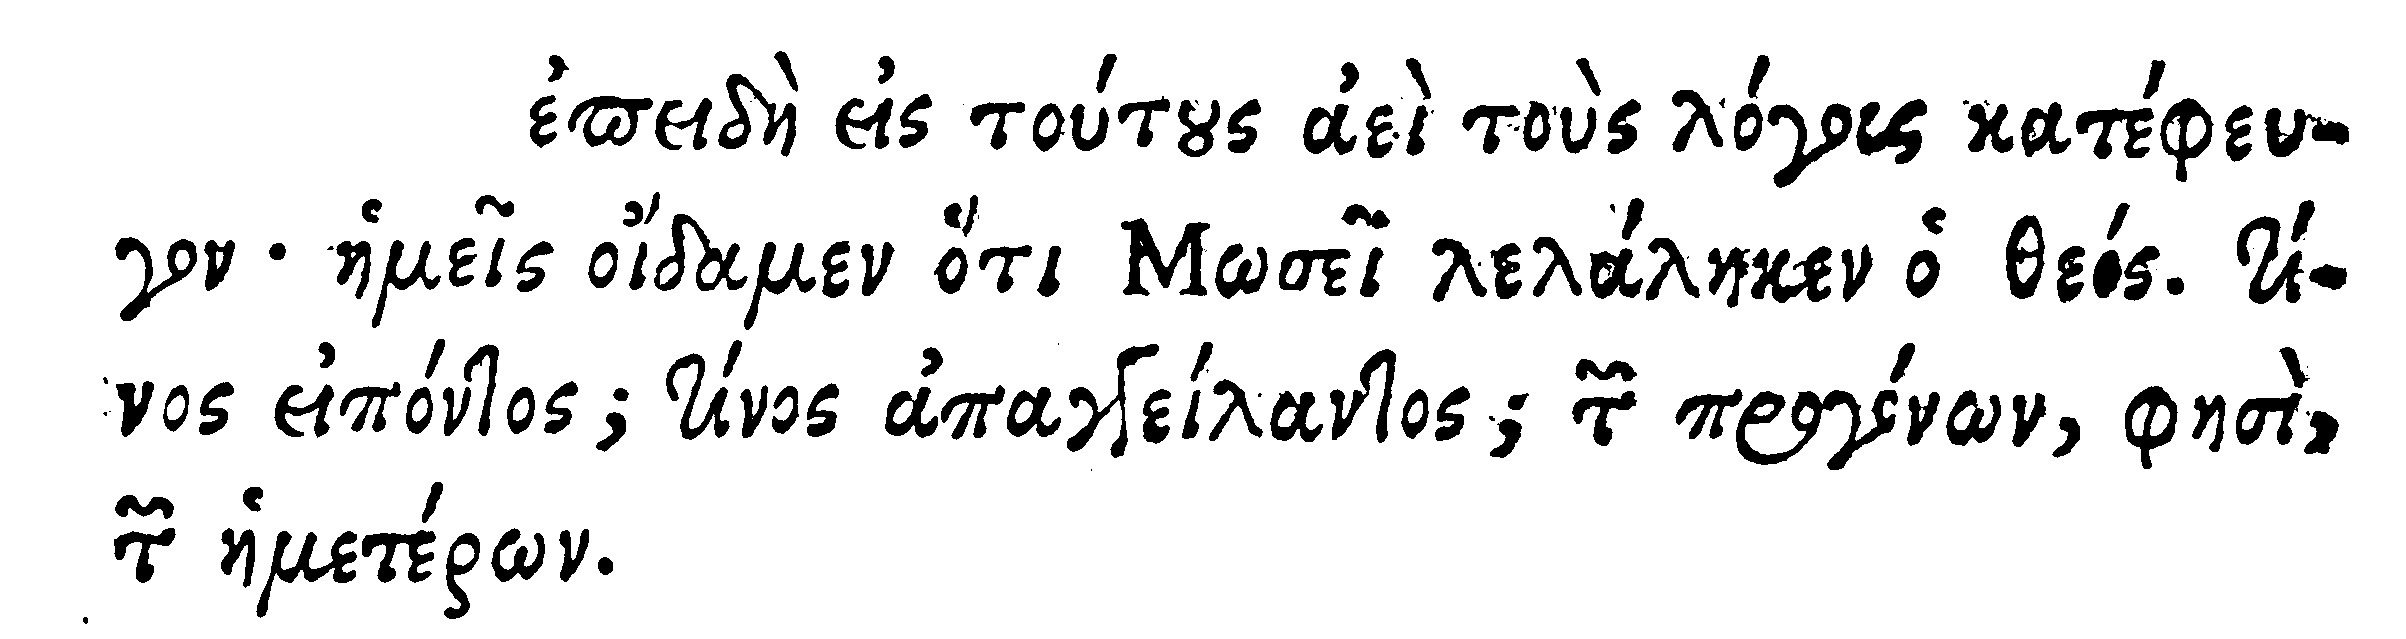 ἐπειδὴ εἰς τούτους ἀεὶ τοὺς λόγους κατέφευ-
γον · ἡμεῖς οἴδαμεν ὅτι Μωσεῖ λελάληκεν ὁ θεός. Τί-
νος εἰπόντος; τίνος ἀπαγγείλαντος; τῶν προγόνων, φησὶ,
τῶν ἡμετέρων.